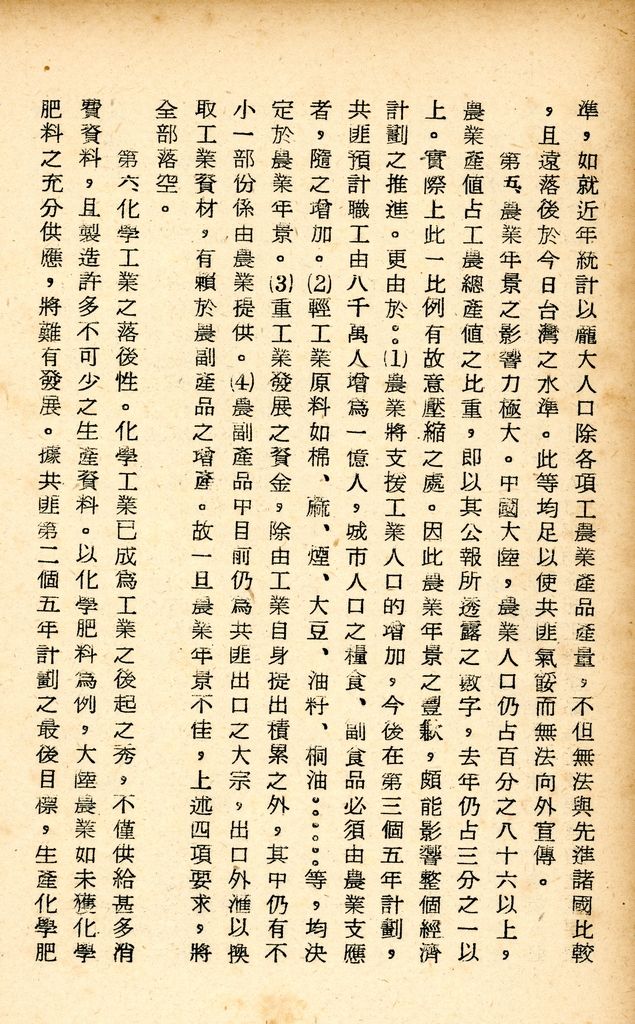 準，如就近年統計以龐大人口除各項工農業產品產量，不但無法與先進諸國比較
，且遠落後於今日台灣之水準。此等均足以使共匪氣餒而無法向外宣傳。
第五、農業年景之影響力極大。中國大陸，農業人口仍占百分之八十六以上，
農業產值占工農總產值之比重，即以其公報所透露之數字，去年仍占三分之一以
上。實際上此一比例有故意壓縮之處。因此農業年景之豐歉，頗能影響整個經濟
計劃之推進。更由於：(1)農業將支援工業人口的增加，今後在第三個五年計劃，
共匪預計職工由八千萬人增爲一億人，城市人口之糧食、副食品必須由農業支應
者，隨之增加。(2)輕工業原料如棉、蔴、煙、大豆、油籽、桐油……等，均決
定於農業年景。(3)重工業發展之資金，除由工業自身提出積累之外，其中仍有不
小一部份係由農業提供。(4)農副產品甲目前仍爲共匪出口之大宗，出口外滙以換
取工業資材，有賴於農副產品之增產。故一旦農業年景不佳，上述四項要求，將
全部落空。
第六化學工業之落後性。化學工業已成爲工業之後起之秀，不僅供給甚多消
費資料，且製造許多不可少之生產資料。以化學肥料爲例，大陸農業如未獲化學
肥料之充分供應，將難有發展。據共匪第二個五年計劃之最後目標，生產化學肥